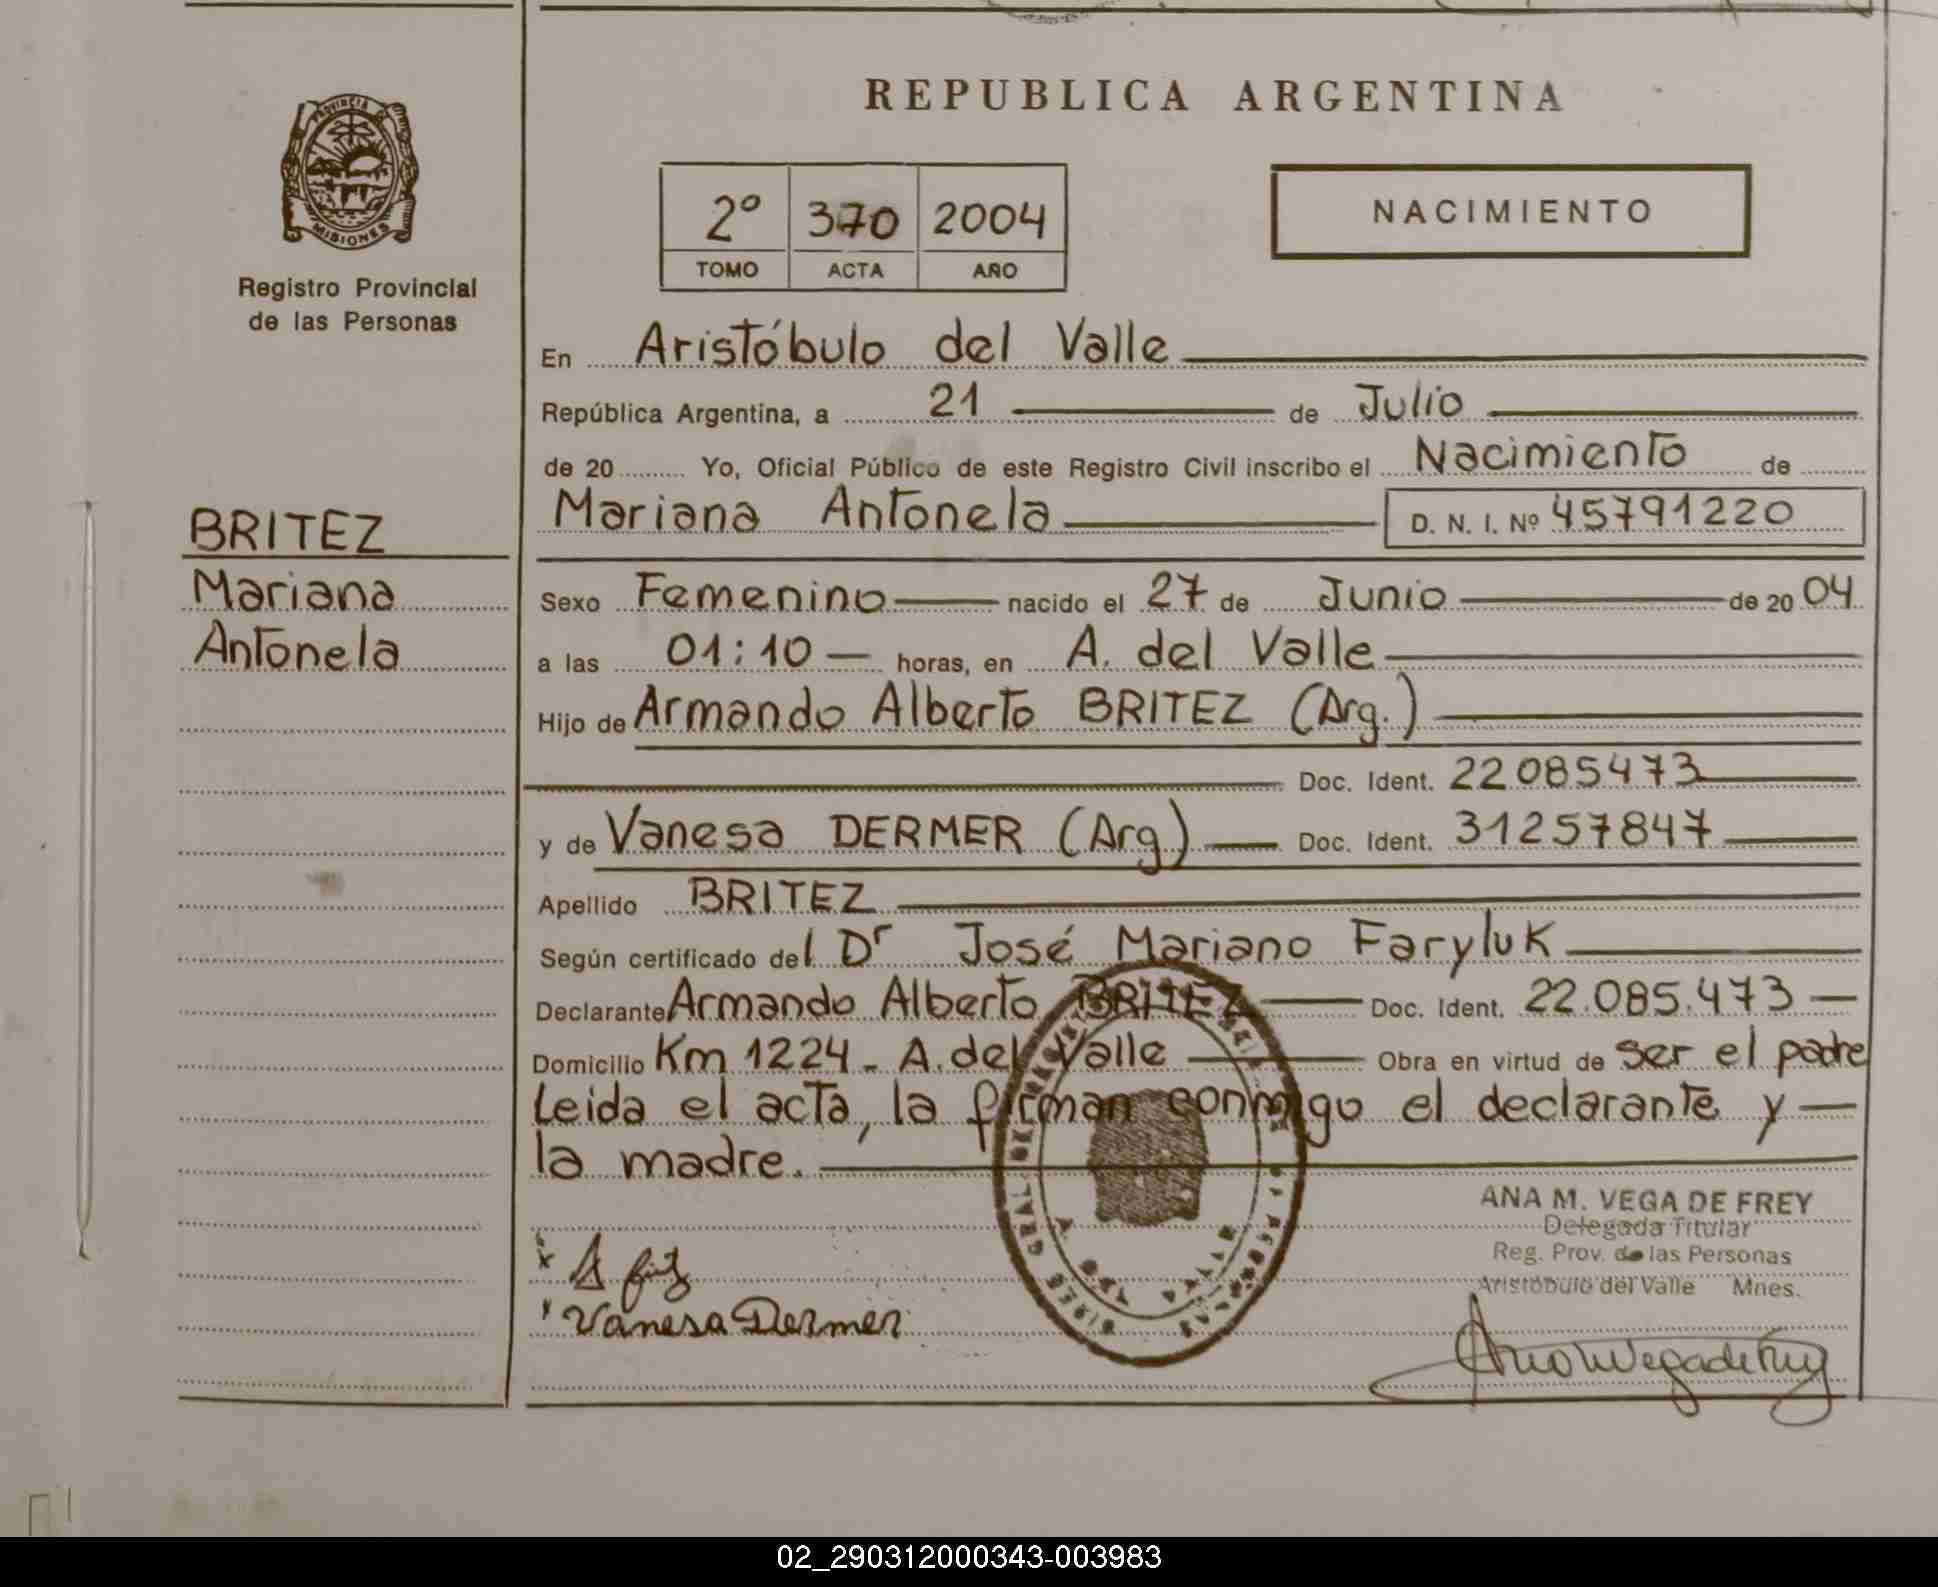 REPUBLICA ARGENTINA
PROVINCIA DE
MISIONES
Registro Provincial
de las Personas
2º 370 2004
TOMO ACTA AÑO
NACIMIENTO
En Aristóbulo del Valle
República Argentina, a 21 de Julio
de 20 Yo, Oficial Público de este Registro Civil inscribo el Nacimiento de
Mariana Antonela D. N. I. Nº 45791220
BRITEZ
Mariana
Antonela
Sexo Femenino nacido el 27 de Junio de 20 04
a las 01:10 horas, en A. del Valle
Hijo de Armando Alberto BRITEZ (Arg.)
Doc. Ident. 22085473
y de Vanesa DERMER (Arg) Doc. Ident. 31257847
Apellido BRITEZ
Según certificado del Dr José Mariano Faryluk
Declarante Armando Alberto BRITEZ Doc. Ident. 22.085.473
Domicilio Km 1224 - A. del Valle Obra en virtud de ser el padre
Leida el acta, la firman conmigo el declarante y
la madre.
ANA M. VEGA DE FREY
Delegada Titular
Reg. Prov. de las Personas
Aristóbulo del Valle Mnes.
Vanesa Dermer
02_290312000343-003983